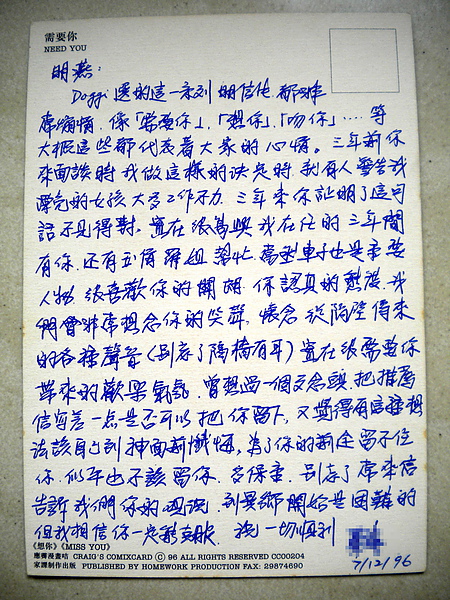 需要你
NEED YOU
明燕:
Doggi 選的這一系列 明信片 都非
常煽情. 像「需要你」、「想你」、「吻你」.... 等
大概這些都代表着大家的心情。三年前你
來面談時 我做這樣的決定時 就有人警告我
漂亮的女孩大多工作不力. 三年來你証明了這句
話不見得對. 實在很高興 我在任的三年間
有你. 還有 羅姐 幫忙. 車子也是重要
人物. 很喜歡你的開朗. 你認真的態度. 我
們會非常想念你的笑聲. 懷念 從隔壁傳來
的各種聲音(別忘了隔牆有耳) 實在很需要你
帶來的歡樂氣氛. 曾想過一個歹念頭. 把推薦
信寫差一点是否可以把你留下, 又覺得有這種想
法該自己到神面前懺悔. 為了你的前途 留不住
你. 似乎也不該留你. 多保重. 別忘了常來信
告訴我們你的現況. 到異鄉開始是困難的
但我相信你一定能克服. 祝一切順利
7/12/96
《想你》《MISS YOU》
應霽漫畫咭 CRAIG'S COMIXCARD © 96 ALL RIGHTS RESERVED CC00204
家課制作出版 PUBLISHED BY HOMEWORK PRODUCTION FAX: 29874690